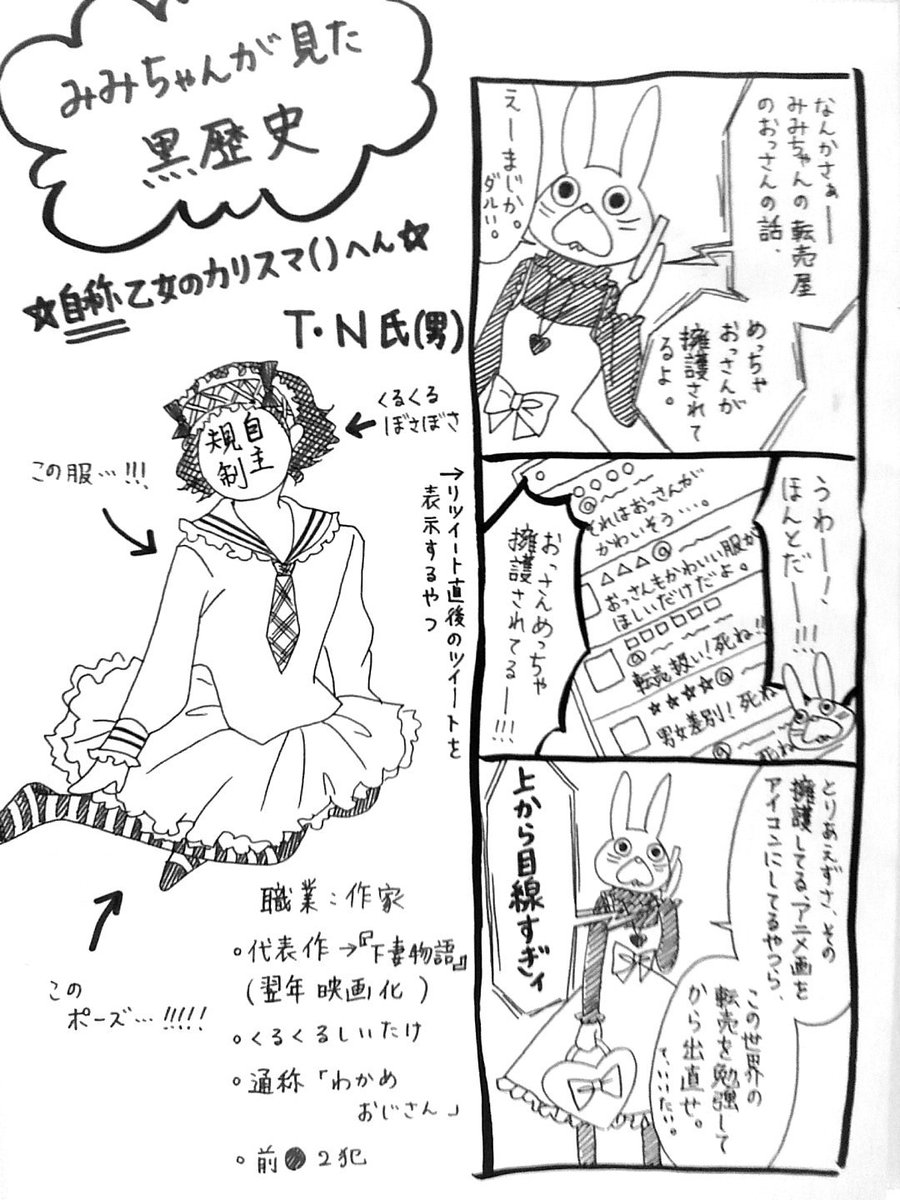 みみちゃんが見た
黒歴史
☆自称乙女のカリスマ()へん☆
T・N氏(男)
くるくる
ぼさぼさ
自主
規制
この服…!!!
→リツイート直後のツイートを
表示するやつ
この
ポーズ…!!!!!
職業：作家
。代表作→『下妻物語』
(翌年映画化)
。くるくるしいたけ
。通称「わかめ
おじさん」
。前●2犯
なんかさぁー
みみちゃんの転売屋
のおっさんの話、
えーまじか。
ダルい。
めっちゃ
おっさんが
擁護されて
るよ。
うわー!、
ほんとだー!!!
○○○○
@~~
それはおっさんが
かわいそう…。
△△△@~~
おっさんもかわいい服が
ほしいだけだよ。
□□□□□
@~~~
転売扱い!死ね!!
☆☆☆☆@~
男女差別!死ね
@~
死ね
おっさんめっちゃ
擁護されてるー!!!
とりあえずさ、その
擁護してる、アニメ画を
アイコンにしてるやつら、
この世界の
転売を勉強して
から出直せ。
ていいたい。
上から目線すぎィ